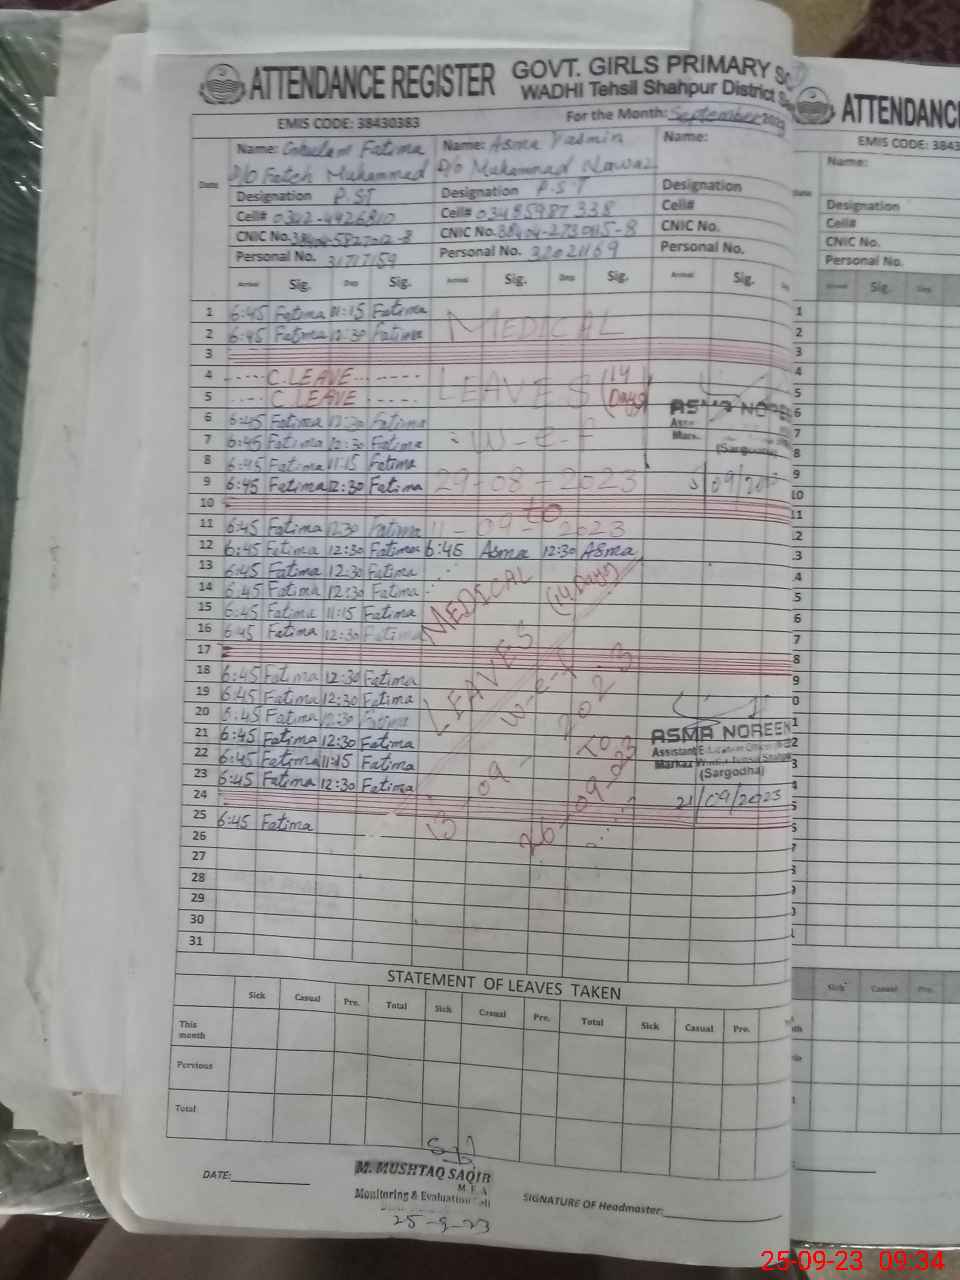 ATTENDANCE REGISTER GOVT. GIRLS PRIMARY
WADHI Tehsil Shahpur District
EMIS CODE: 38430383 For the Month: September 2023
Name: Ghulam Fatima Name: Asma Yasmin Name:
D/o Fateh Muhammad D/o Muhammad Nawaz
Date
Designation P.ST Designation P.ST Designation
Cell# 0342-4426810 Cell# 03485987338 Cell#
CNIC No. CNIC No. CNIC No.
Personal No. 31717159 Personal No. 32021169 Personal No.
Arrival Sig. Dep Sig. Arrival Sig. Dep Sig. Arrival Sig.
1 6:45 Fatima 11:15 Fatima
2 6:45 Fatima 12:30 Fatima MEDICAL
3
4 C.LEAVE LEAVES (14
5 C.LEAVE Days)
6 6:45 Fatima 12:30 Fatima ASMA NOREEN
7 6:45 Fatima 12:30 Fatima W-e-f
(Sargodha)
8 6:45 Fatima 11:15 Fatima
9 6:45 Fatima 12:30 Fatima 29-08-2023
10 to
11 6:45 Fatima 12:30 Fatima 11-09-2023
12 6:45 Fatima 12:30 Fatima 6:45 Asma 12:30 Asma
13 6:45 Fatima 12:30 Fatima
14 6:45 Fatima 12:30 Fatima MEDICAL (14 Days)
15 6:45 Fatima 11:15 Fatima
16 6:45 Fatima 12:30 Fatima LEAVES
17
18 6:45 Fatima 12:30 Fatima W-e-f
19 6:45 Fatima 12:30 Fatima
20 6:45 Fatima 12:30 Fatima 13-09-2023
21 6:45 Fatima 12:30 Fatima TO ASMA NOREEN
Assistant Education Officer
22 6:45 Fatima 11:15 Fatima
Markaz
(Sargodha)
23 6:45 Fatima 12:30 Fatima 26-09-023
24 21/09/2023
25 6:45 Fatima
26
27
28
29
30
31
STATEMENT OF LEAVES TAKEN
Sick Casual Pre. Total Sick Casual Pre. Total Sick Casual Pre.
This
month
Pervious
Total
DATE:
M. MUSHTAQ SAQIB
M.E.A
Monitoring & Evaluation Cell
25-9-23
SIGNATURE OF Headmaster:
ATTENDANCE
EMIS CODE: 3843
Name:
Designation
Cell#
CNIC No.
Personal No.
Sig.
Sick Casual Pre.
25-09-23 09:34